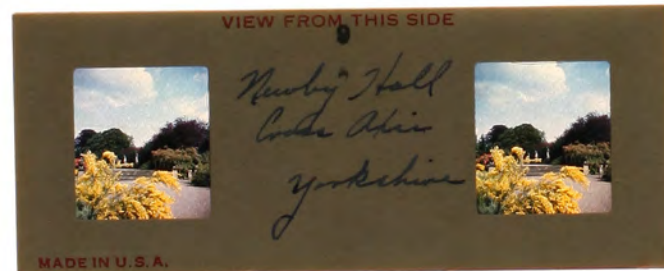 VIEW FROM THIS SIDE
9
Newby Hall
Cross Axis
Yorkshire
MADE IN U.S.A.